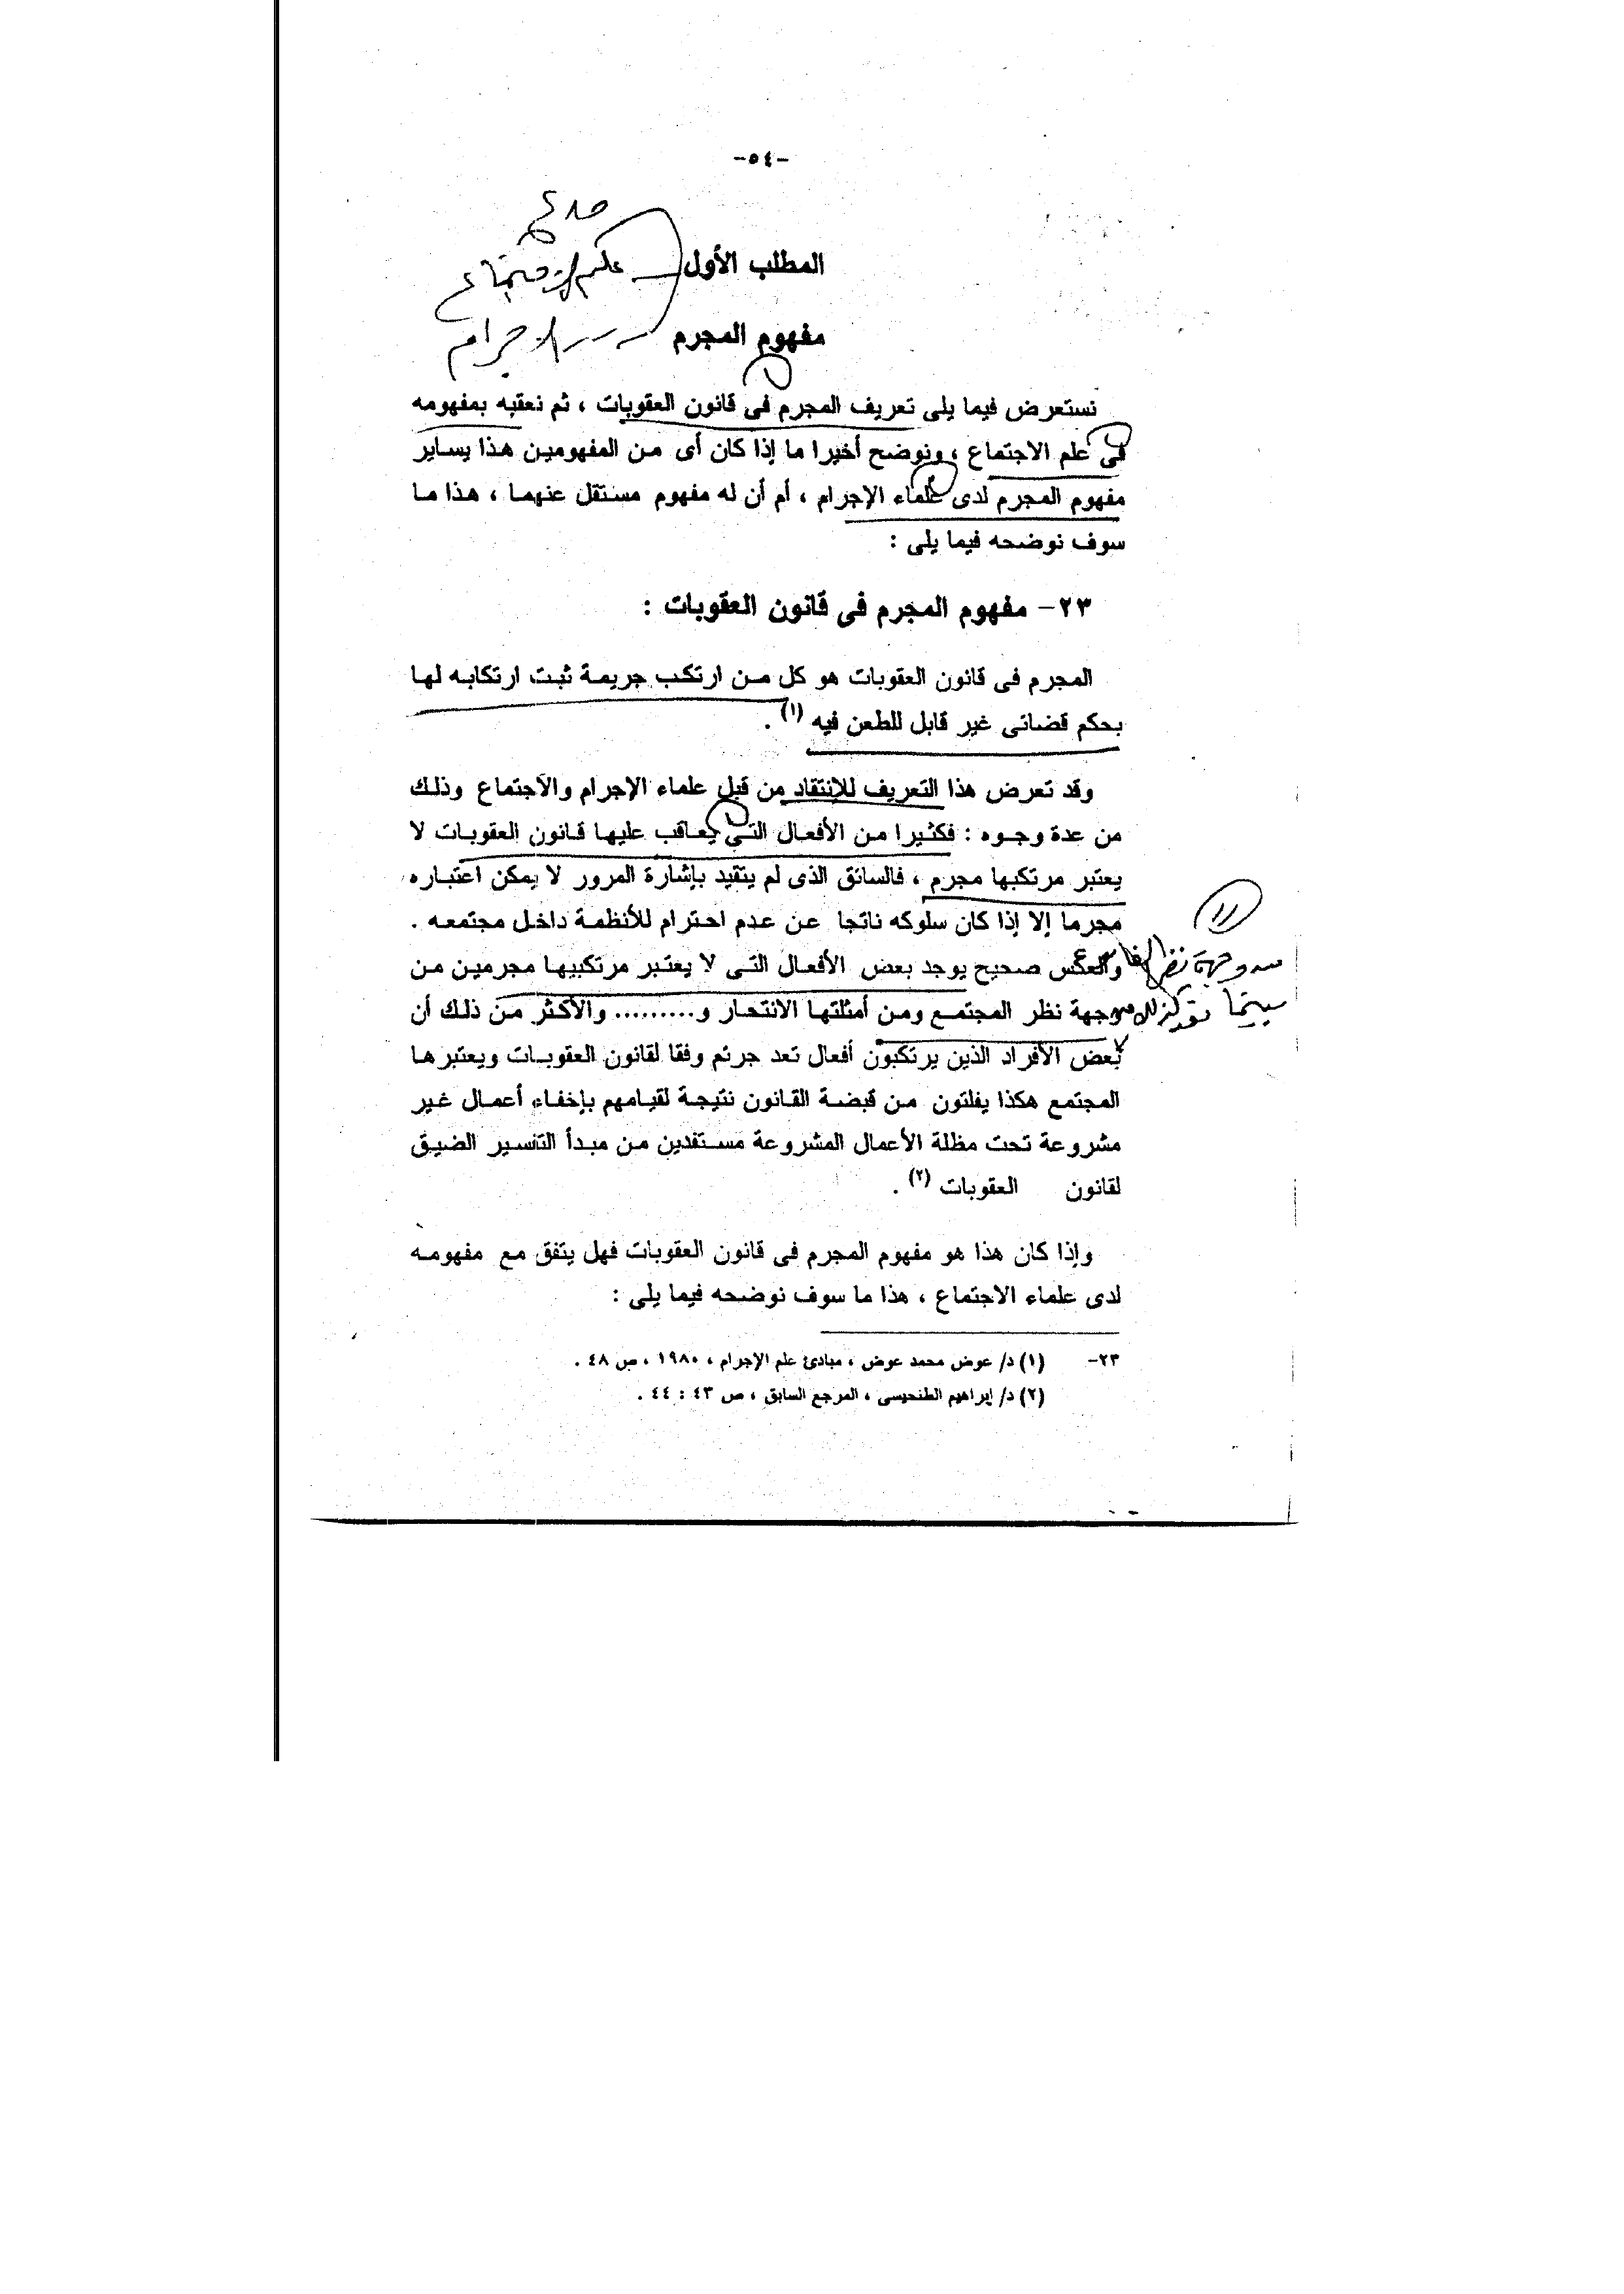 -٥٤-
المطلب الأول
علم الاجتماع
مفهوم المجرم
نستعرض فيما يلى تعريف المجرم فى قانون العقوبات ، ثم نعقبه بمفهومه
فى علم الاجتماع ، ونوضح أخيرا ما إذا كان أى من المفهومين هذا يساير
مفهوم المجرم لدى علماء الإجرام ، أم أن له مفهوم مستقل عنهما ، هذا ما
سوف نوضحه فيما يلى :
٢٣- مفهوم المجرم فى قانون العقوبات :
المجرم فى قانون العقوبات هو كل من ارتكب جريمة ثبت ارتكابه لها
بحكم قضائى غير قابل للطعن فيه (١) .
وقد تعرض هذا التعريف للإنتقاد من قبل علماء الإجرام والاجتماع وذلك
من عدة وجوه : فكثيرا من الأفعال التى يعاقب عليها قانون العقوبات لا
يعتبر مرتكبها مجرم ، فالسائق الذى لم يتقيد بإشارة المرور لا يمكن اعتباره
مجرما إلا إذا كان سلوكه ناتجا عن عدم احترام للأنظمة داخل مجتمعه .
والعكس صحيح يوجد بعض الأفعال التى لا يعتبر مرتكبيها مجرمين من
وجهة نظر المجتمع ومن أمثلتها الانتحار و......... والأكثر من ذلك أن
بعض الأفراد الذين يرتكبون أفعال تعد جرئم وفقا لقانون العقوبات ويعتبرها
المجتمع هكذا يفلتون من قبضة القانون نتيجة لقيامهم بإخفاء أعمال غير
مشروعة تحت مظلة الأعمال المشروعة مستفدين من مبدأ التفسير الضيق
لقانون العقوبات (٢) .
وإذا كان هذا هو مفهوم المجرم فى قانون العقوبات فهل يتفق مع مفهومه
لدى علماء الاجتماع ، هذا ما سوف نوضحه فيما يلى :
٢٣- (١) د/ عوض محمد عوض ، مبادئ علم الإجرام ، ١٩٨٠ ، ص ٤٨ .
(٢) د/ إبراهيم الطنحيسى ، المرجع السابق ، ص ٤٣ : ٤٤ .